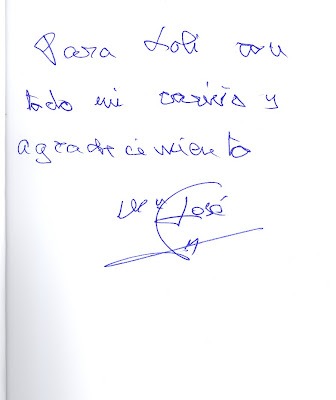 Para Loli con
todo mi cariño y
agradecimiento
Mª José